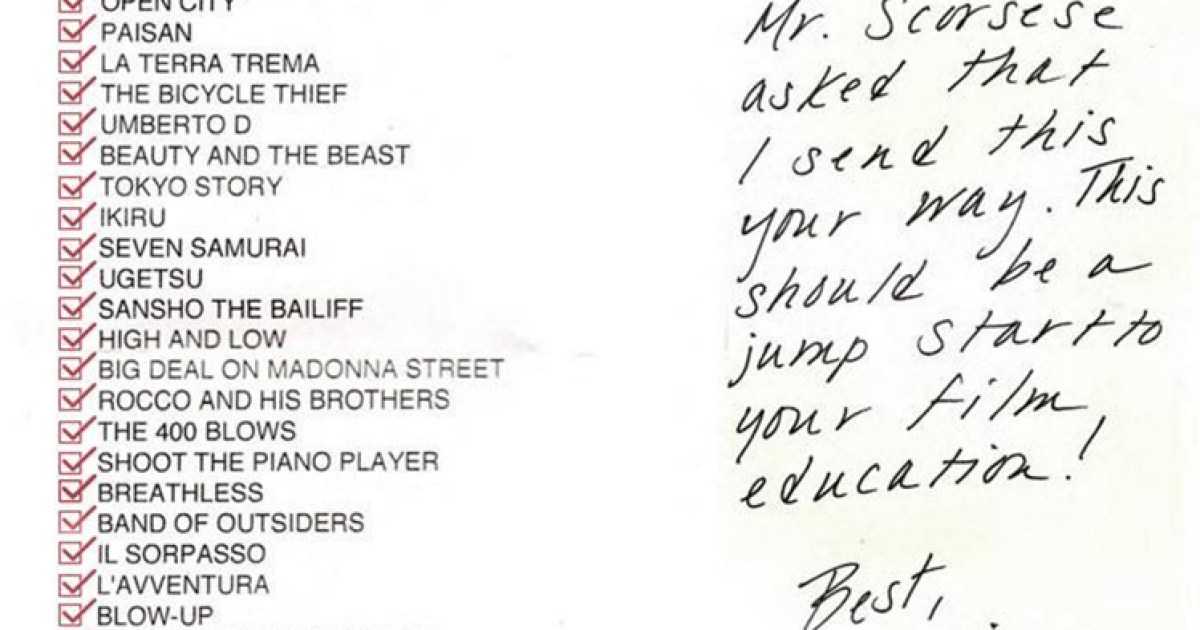 OPEN CITY
PAISAN
LA TERRA TREMA
THE BICYCLE THIEF
UMBERTO D
BEAUTY AND THE BEAST
TOKYO STORY
IKIRU
SEVEN SAMURAI
UGETSU
SANSHO THE BAILIFF
HIGH AND LOW
BIG DEAL ON MADONNA STREET
ROCCO AND HIS BROTHERS
THE 400 BLOWS
SHOOT THE PIANO PLAYER
BREATHLESS
BAND OF OUTSIDERS
IL SORPASSO
L'AVVENTURA
BLOW-UP
Mr. Scorsese
asked that
I send this
your way. This
should be a
jump start to
your film
education!
Best,